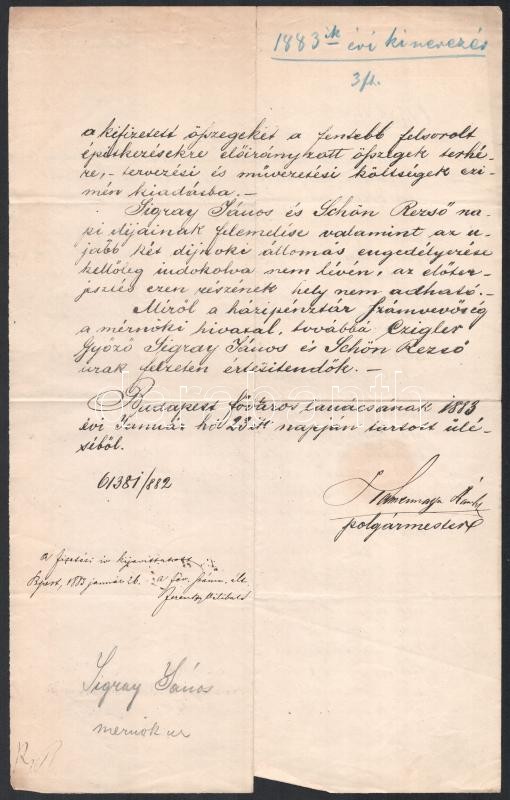 1883ik évi kinevezés
3 ft.
a kifizetett öszegeket a fentebb felsorolt
épitkezésekre előirányzott öszegek terhé-
re, - tervezési és művezetési költségek czi-
mén kiadásba. -
Sigray János és Schön Rezső na-
pi dijáinak felemelése valamint az u-
jabb két dijnoki állomás engedélyezése
kellőleg indokolva nem lévén, az előter-
jesztés ezen részének hely nem adható. -
Miről a házipénztár, számvevőség
a mérnöki hivatal, továbbá Czigler
Győző Sigray János és Schön Rezső
urak felzeten értesitendők. -
Budapest főváros tanácsának 1883
évi Január hó 23ik napján tartott ülé-
séből.
61381/882
polgármester
a fizetési iv kijavittatott
Bpest, 1883 január 26. a főv. szám.
Sigray János
mérnök ur
darabanth